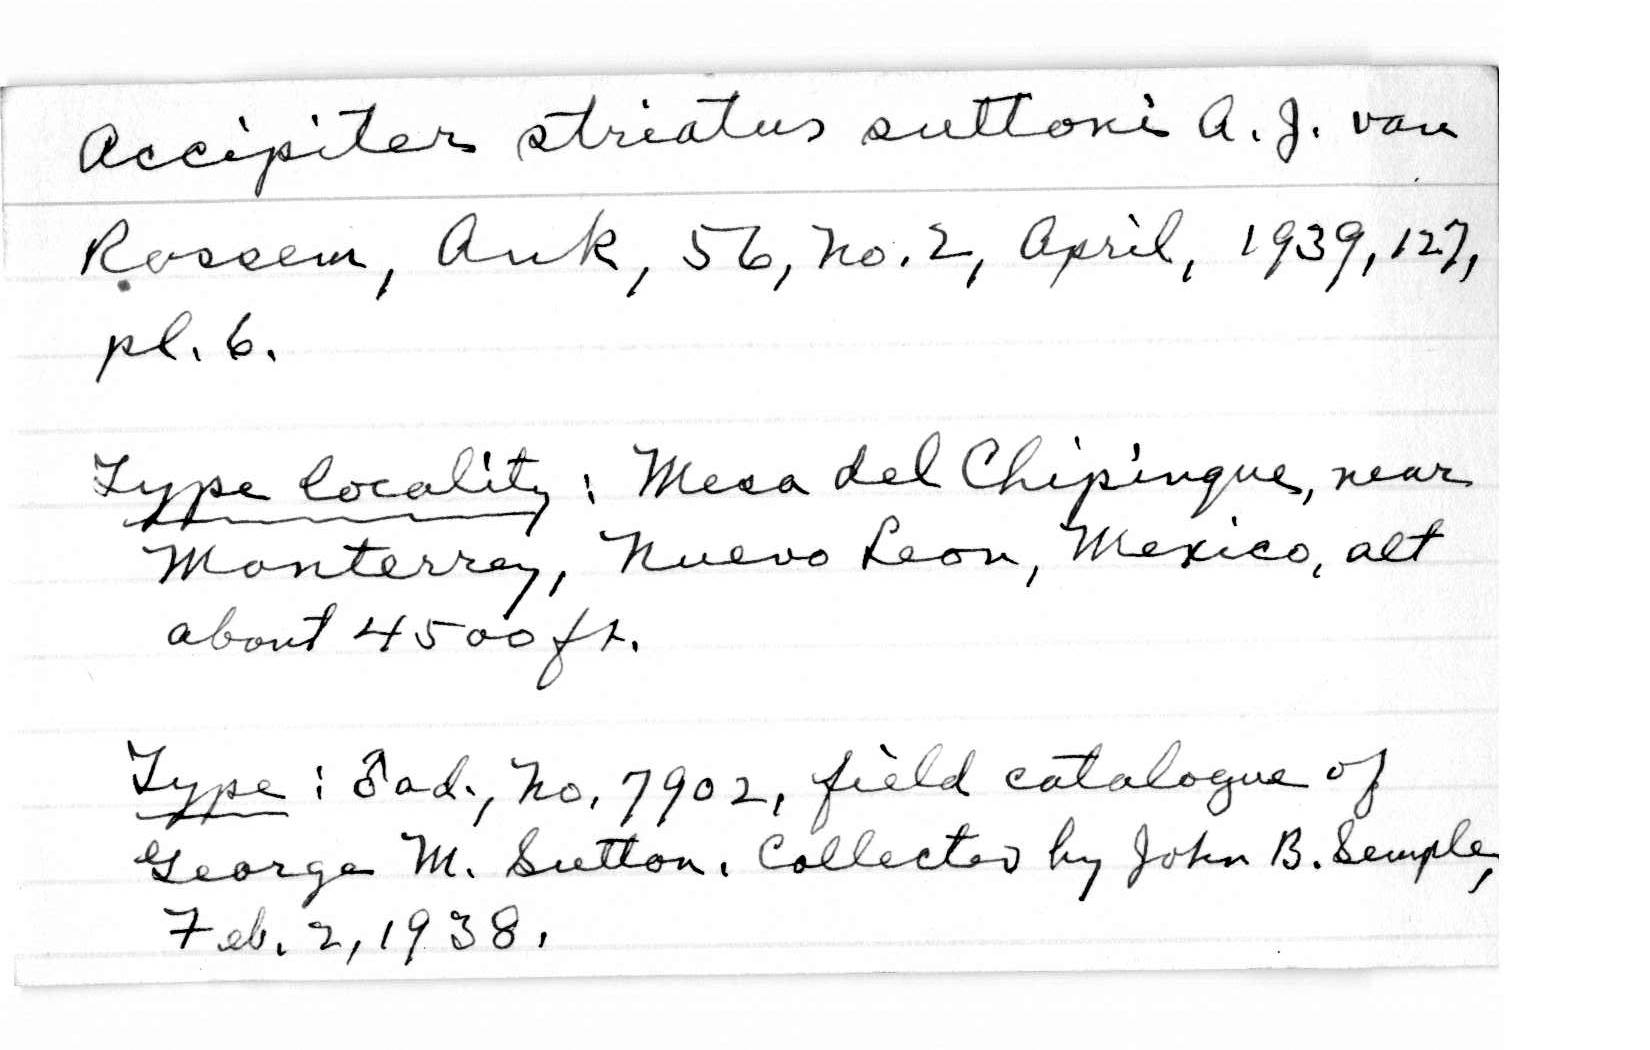 Accipiter striatus suttoni A. J. van
Rossem, Auk, 56, No. 2, April, 1939, 127,
pl. 6.
Type locality: Mesa del Chipinque, near
Monterrey, Nuevo Leon, Mexico, alt
about 4500 ft.
Type: ♂ ad., No. 7902, field catalogue of
George M. Sutton. Collected by John B. Semple,
Feb. 2, 1938.